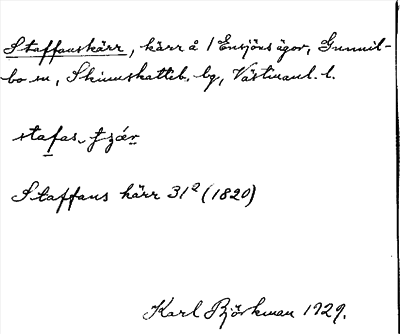 Staffanskärr, kärr å / Ensjöns ägor, Gunnil-
bo sn, Skinnskatteb. bg, Västmanl. l.
stafas-
Staffans kärr 31² (1820)
Karl Björkman 1929.